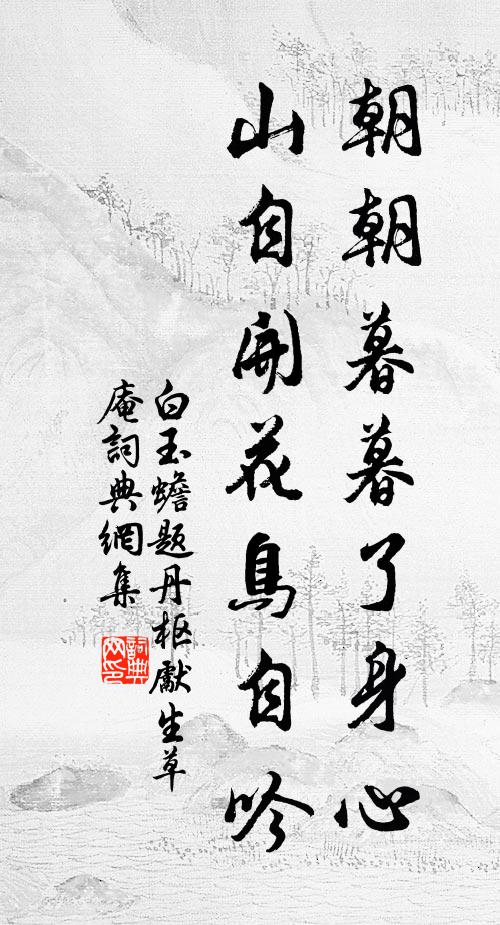 朝朝暮暮了身心
山自開花鳥自吟
白玉蟾題丹樞獻生草
庵詞典網集
詞典網印